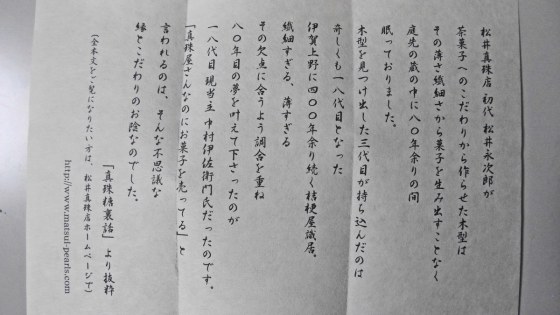 松井真珠店 初代 松井永次郎が
茶菓子へのこだわりから作らせた木型は
その薄さ繊細さから菓子を生み出すことなく
庭先の蔵の中に八〇年余りの間
眠っておりました。
木型を見つけ出した三代目が持ち込んだのは
奇しくも一八代目となった
伊賀上野に四〇〇年余り続く桔梗屋識居。
繊細すぎる、薄すぎる
その欠点に合うよう調合を重ね
八〇年目の夢を叶えて下さったのが
一八代目現当主 中村伊佐衛門氏だったのです。
「真珠屋さんなのにお菓子を売ってる」と
言われるのは、そんな不思議な
縁とこだわりのお陰なのでした。
「真珠糖裏話」より抜粋
（全本文をご覧になりたい方は、松井真珠店ホームページで）
http://www.matsui-pearls.com